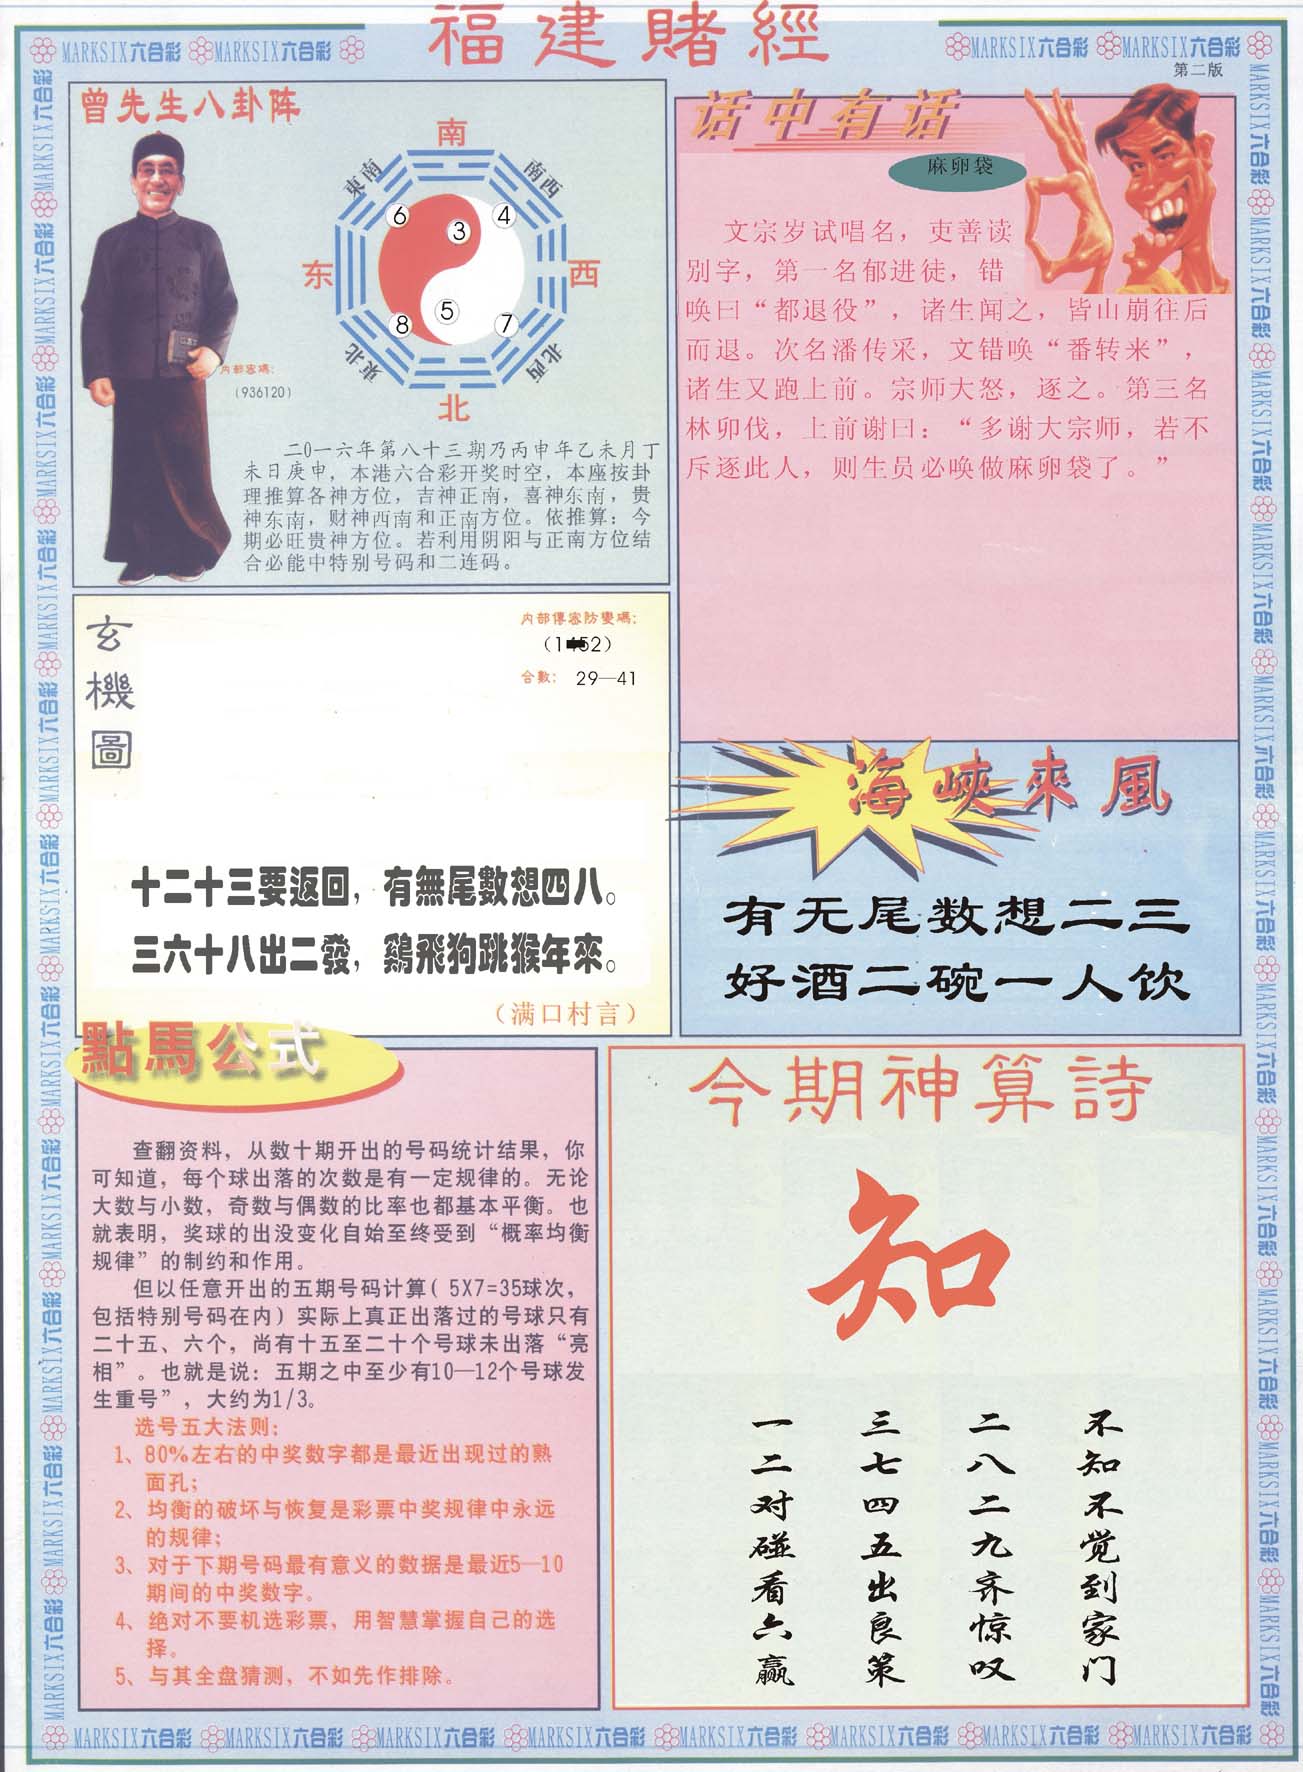 福建賭經
MARKSIX六合彩 MARKSIX六合彩
MARKSIX六合彩 MARKSIX六合彩
第二版
曾先生八卦阵
南
東南
南西
6
3
4
东
西
5
8
7
東北
北西
北
内部密碼：
（936120）
二〇一六年第八十三期乃丙申年乙未月丁
未日庚申，本港六合彩开奖时空，本座按卦
理推算各神方位，吉神正南，喜神东南，贵
神东南，财神西南和正南方位。依推算：今
期必旺贵神方位。若利用阴阳与正南方位结
合必能中特别号码和二连码。
话中有话
麻卵袋
文宗岁试唱名，吏善读
别字，第一名郁进徒，错
唤曰“都退役”，诸生闻之，皆山崩往后
而退。次名潘传采，文错唤“番转来”，
诸生又跑上前。宗师大怒，逐之。第三名
林卯伐，上前谢曰：“多谢大宗师，若不
斥逐此人，则生员必唤做麻卵袋了。”
玄機圖
内部傳密防變碼：
合數： 29—41
十二十三要返回，有無尾數想四八。
三六十八出二發，鷄飛狗跳猴年來。
（满口村言）
海峽來風
有无尾数想二三
好酒二碗一人饮
點馬公式
查翻资料，从数十期开出的号码统计结果，你
可知道，每个球出落的次数是有一定规律的。无论
大数与小数，奇数与偶数的比率也都基本平衡。也
就表明，奖球的出没变化自始至终受到“概率均衡
规律”的制约和作用。
但以任意开出的五期号码计算（5X7=35球次，
包括特别号码在内）实际上真正出落过的号球只有
二十五、六个，尚有十五至二十个号球未出落“亮
相”。也就是说：五期之中至少有10—12个号球发
生重号”，大约为1/3。
选号五大法则：
1、80%左右的中奖数字都是最近出现过的熟
面孔；
2、均衡的破坏与恢复是彩票中奖规律中永远
的规律；
3、对于下期号码最有意义的数据是最近5—10
期间的中奖数字。
4、绝对不要机选彩票，用智慧掌握自己的选
择。
5、与其全盘猜测，不如先作排除。
今期神算詩
知
不知不觉到家门
二八二九齐惊叹
三七四五出良策
一二对碰看六赢
MARKSIX六合彩 MARKSIX六合彩 MARKSIX六合彩 MARKSIX六合彩 MARKSIX六合彩 MARKSIX六合彩 MARKSIX六合彩 MARKSIX六合彩